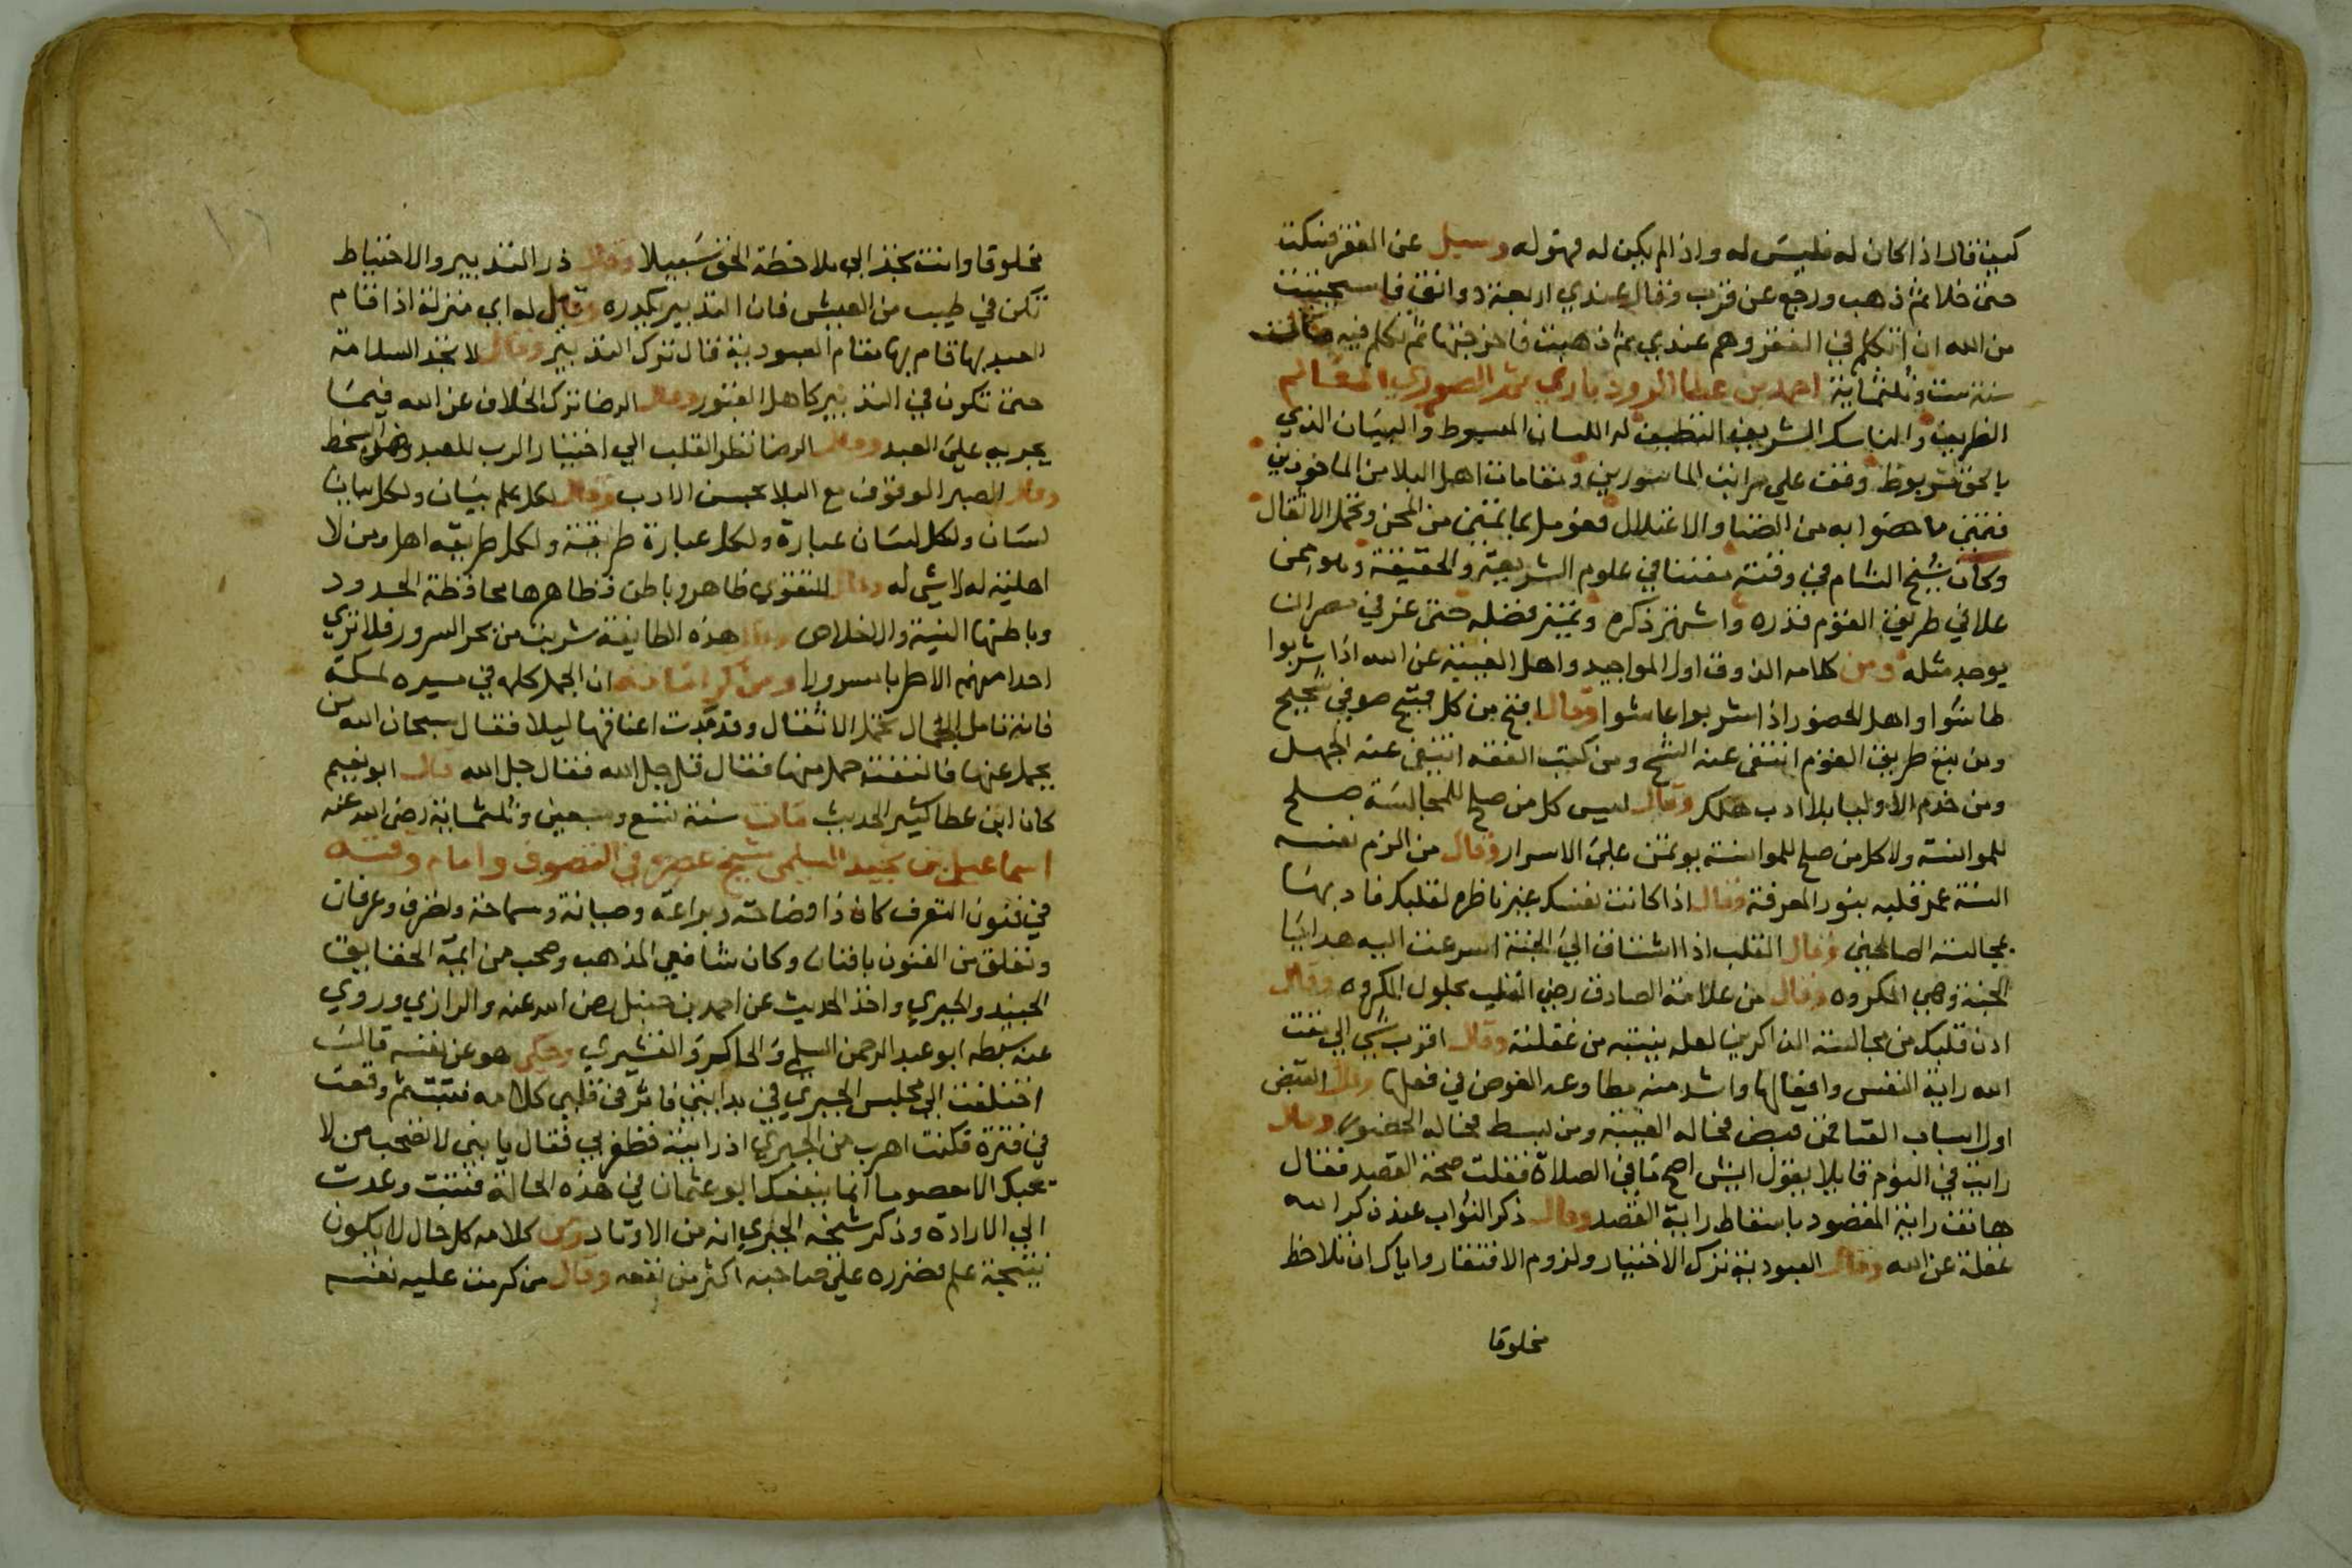 كيف قال اذا كان له فليس له واذا لم يكن له فهو له وسيل عن الفقر فسكت
حتى خلا ثم ذهب ورجع عن قرب وقال عندي اربعة دوانق فاستحييت
من الله ان اتكلم في الفقر وهم عندي ثم ذهبت فاخرجتها ثم تكلم فيه مات
سنة ست وثلثماية احمد بن عطا الرودباري ثم الصوري العالم
الظريف والناسك الشريف النظيف له اللسان المبسوط والبيان الذي
بالحق مربوط وقف علي مراتب الماسورين ومقامات اهل البلا من الماخوذين
فتمنى ما خصوا به من الضنا والاعتلال فعومل بما تمنى من المحن وتحمل الاثقال
وكان شيخ الشام في وقته مفننا في علوم الشريعة والحقيقة وهو ممن
علا في طريق القوم قدره واشتهر ذكره وتميز فضله حتى عز في مصر ان
يوجد مثله ومن كلامه الذوق اول المواجيد واهل الغيبة عن الله اذا شربوا
طاشوا واهل الحضور اذا شربوا عاشوا وقال اقبح من كل قبيح صوفي شحيح
ومن تبع طريق القوم انتفى عنه الشح ومن كتب الفقه انتفى عنه الجهل
ومن خدم الاوليا بلا ادب هلك وقال ليس كل من صلح للمجالسة صلح
للموانسة ولا كل من صلح للموانسة يوتمن على الاسرار وقال من الزم نفسه
السنة عمر قلبه بنور المعرفة وقال اذا كانت نفسك غير ناظره لقلبك فادبها
بمجالسة الصالحين وقال القلب اذا اشتاق الي الجنة اسرعت اليه هدايا
الجنة وهي المكروه وقال من علامة الصادق رضي القلب بحلول المكروه وقال
ادن قلبك من مجالسة الذاكرين لعله ينتبه من غفلته وقال اقرب شي الي مقت
الله راية النفس وافعالها واشد منه مطاوعه الغوص في فعلها وقال القبض
اول اسباب الفنا فمن قبض فحاله الغيبة ومن بسط فحاله الحضور وقال
رايت في النوم قايلا يقول ايش اصح ما في الصلاة فقلت صحة القصد فقال
هاتف راية المقصود باسقاط راية القصد وقال ذكر الثواب عند ذكر الله
غفلة عن الله وقال العبودية ترك الاختيار ولزوم الافتقار واياك ان تلاحظ
مخلوقا
مخلوقا وانت تجد الي ملاحظة الحق سبيلا وقال ذر التدبير والاختياط
تكن في طيب من العيش فان التدبير يكدره وقيل له اي منزلة اذا قام
العبد بها قام بها مقام العبودية فقال ترك التدبير وقال لا تجد السلامة
حتى تكون في التدبير كاهل القبور وقال الرضا ترك الخلاف عن الله فيما
يجريه علي العبد وقال الرضا نظر القلب الي اختيار الرب للعبد وهو السخط
وقال الصبر الوقوف مع البلا بحسن الادب وقال لكل علم بيان ولكل بيان
لسان ولكل لسان عبارة ولكل عبارة طريقة ولكل طريقه اهل ومن لا
اهلية له لا شي له وقال للتقوي ظاهر وباطن فظاهرها محافظة الحدود
وباطنها النية والاخلاص وقال هذه الطايفة شربت من بحر السرور فلا تري
احدا منهم الا طربا مسرورا ومن كراماته ان الجمل كلمه في مسيره لمكة
فانه تامل الجمال تحمل الاثقال وقد مدت اعناقها ليلا فقال سبحان الله من
يحمل عنها فالتفت جمل منها فقال قل جل الله فقال جل الله قال ابو نعيم
كان ابن عطا كثير الحديث مات سنة تسع وستين وثلثماية رضي الله عنه
اسماعيل بن نجيد السلمي شيخ عصره في التصوف وامام وقته
في فنون التعرف كان ذا فصاحة وبراعة وصيانة وسماحة وتصرف وعرفان
وتعلق من الفنون بافنان وكان شافعي المذهب وصحب من ايمة الحقايق
الجنيد والحيري واخذ الحديث عن احمد بن حنبل رضي الله عنه والرازي وروي
عنه سبطه ابو عبد الرحمن السلمي والحاكم والقشيري وحكى هو عن نفسه قال
اختلفت الي مجلس الحيري في بدايتي فاثر في قلبي كلامه فتبت ثم وقعت
في فترة فكنت اهرب من الحيري اذ رايته فظفر بي فقال يا بني لا تصحب من لا
يحبك الا معصوما انما ينفعك ابو عثمان في هذه الحالة فتبت وعدت
الي الارادة وذكر شيخه الحيري انه من الاوتاد ومن كلامه كل حال لا يكون
نتيجة علم فضرره علي صاحبه اكثر من نفعه وقال من كرمت عليه نفسه